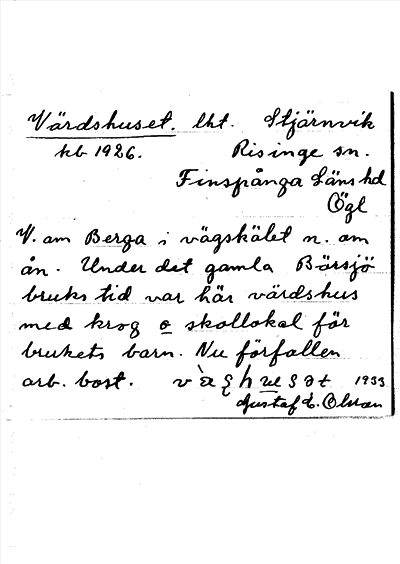 Värdshuset. lht. Stjärnvik
kb 1926. Risinge sn.
Finspånga Läns hd
Ögl
V. om Berga i vägskälet n. om
ån. Under det gamla Börsjö
bruks tid var här värdshus
med krog o skollokal för
brukets barn. Nu förfallen
arb. bost. 1933
Gustaf E. Olsson